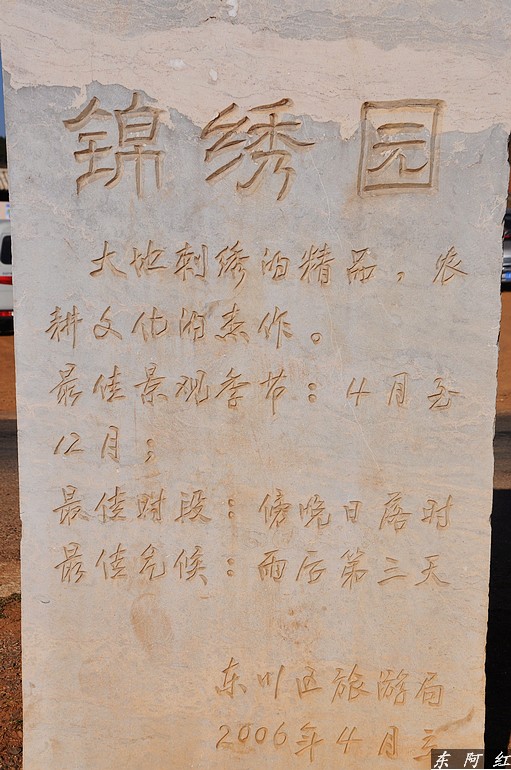 锦绣园
大地刺绣的精品，农
耕文化的杰作。
最佳景观季节：4月至
12月；
最佳时段：傍晚日落时
最佳气候：雨后第三天
东川区旅游局
2006年4月立
东阿红